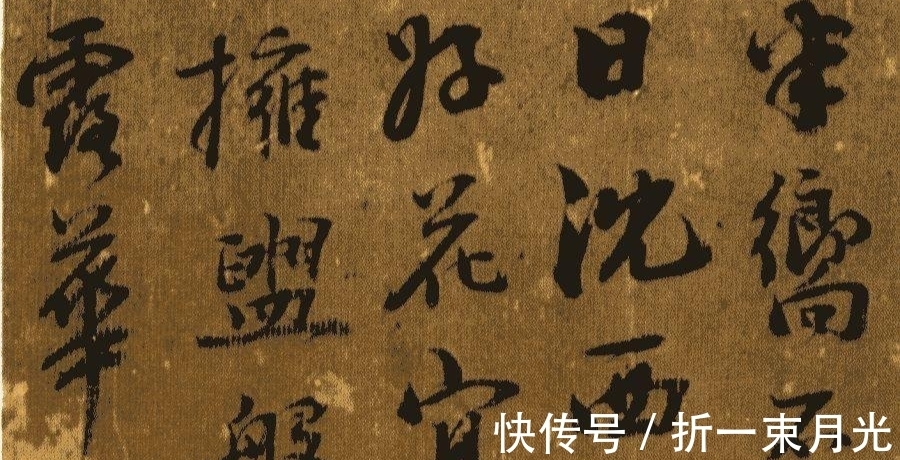 半嚮
日沈西
好花宜
擁盥
露華
快传号 / 折一束月光